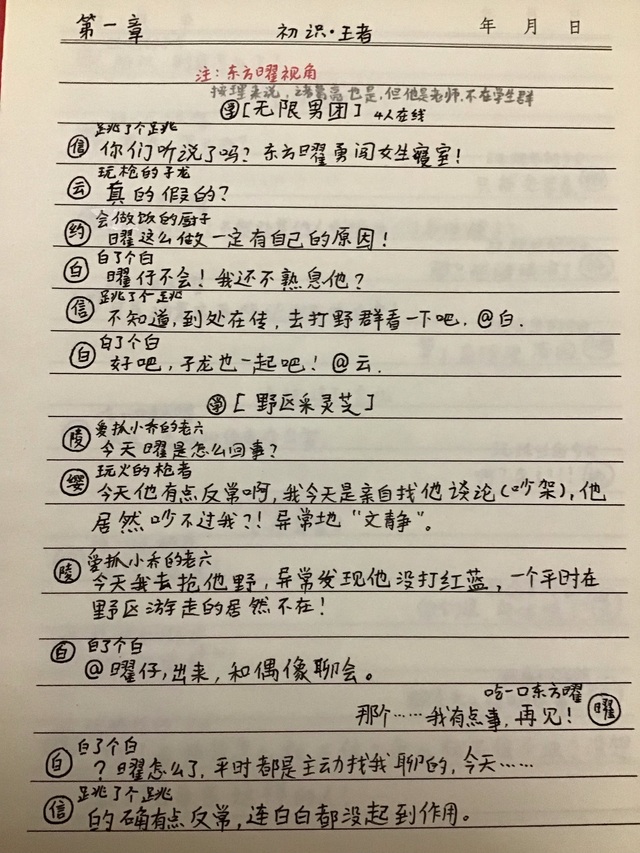 第一章 初识·王者 年 月 日
注：东方曜视角
按理来说，诸葛亮也是，但他是老师，不在学生群
[无限男团] 4人在线
跳了个跳
信 你们听说了吗？东方曜勇闯女生寝室！
玩枪的子龙
云 真的假的？
会做饭的厨子
约 曜这么做一定有自己的原因！
白了个白
白 曜仔不会！我还不熟息他？
跳了个跳
信 不知道，到处在传，去打野群看一下吧，@白．
白了个白
白 好吧，子龙也一起吧！@云．
[野区采灵芝]
爱抓小乔的老六
陵 今天曜是怎么回事？
玩火的枪者
缨 今天他有点反常啊，我今天是亲自找他谈论(吵架)，他
居然吵不过我？！异常地“文静”。
爱抓小乔的老六
陵 今天我去抢他野，异常发现他没打红蓝，一个平时在
野区游走的居然不在！
白了个白
白 @曜仔，出来，和偶像聊会。
吃一口东方曜
那个……我有点事，再见！ 曜
白了个白
白 ？曜怎么了，平时都是主动找我聊的，今天……
跳了个跳
信 的确有点反常，连白白都没起到作用。